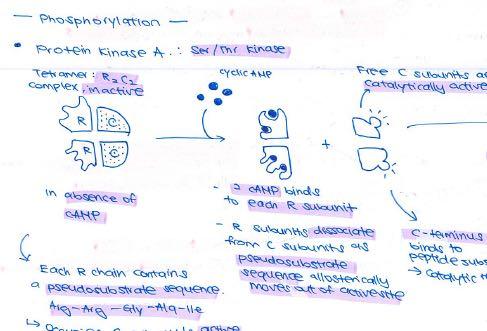 — Phosphorylation —
• Protein Kinase A : Ser/Thr Kinase
Tetramer : R2C2
complex, inactive
cyclic AMP
Free C subunits
catalytically active
R C
R C
+
in absence of
cAMP
- 2 cAMP binds
to each R subunit
- R subunits dissociate
from C subunits as
pseudosubstrate
sequence allosterically
moves out of active site
C-terminus
binds to
peptide
→ catalytic
Each R chain contains
a pseudosubstrate sequence
Arg-Arg-Gly-Ala-Ile
active